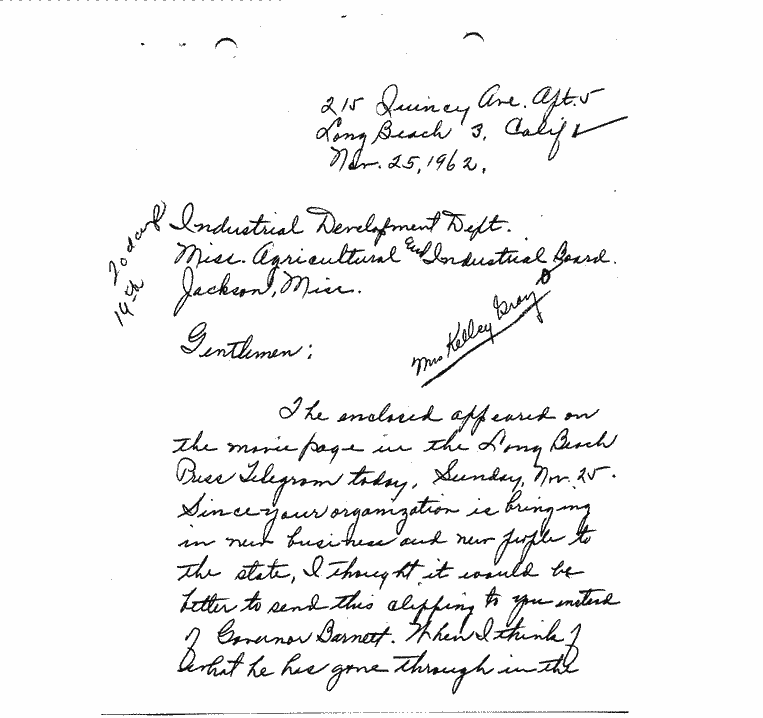 215 Quincy Ave. Apt. 5
Long Beach 3, Calif
Nov. 25, 1962.
Industrial Development Dept.
Miss. Agricultural and Industrial Board.
Jackson, Miss.
19th
Mrs Kelley Gray
Gentlemen:
The enclosed appeared on
the movie page in the Long Beach
Press Telegram today, Sunday, Nov. 25.
Since your organization is bringing
in new business and new people to
the state, I thought it would be
better to send this clipping to you instead
of Governor Barnett. When I think of
what he has gone through in the